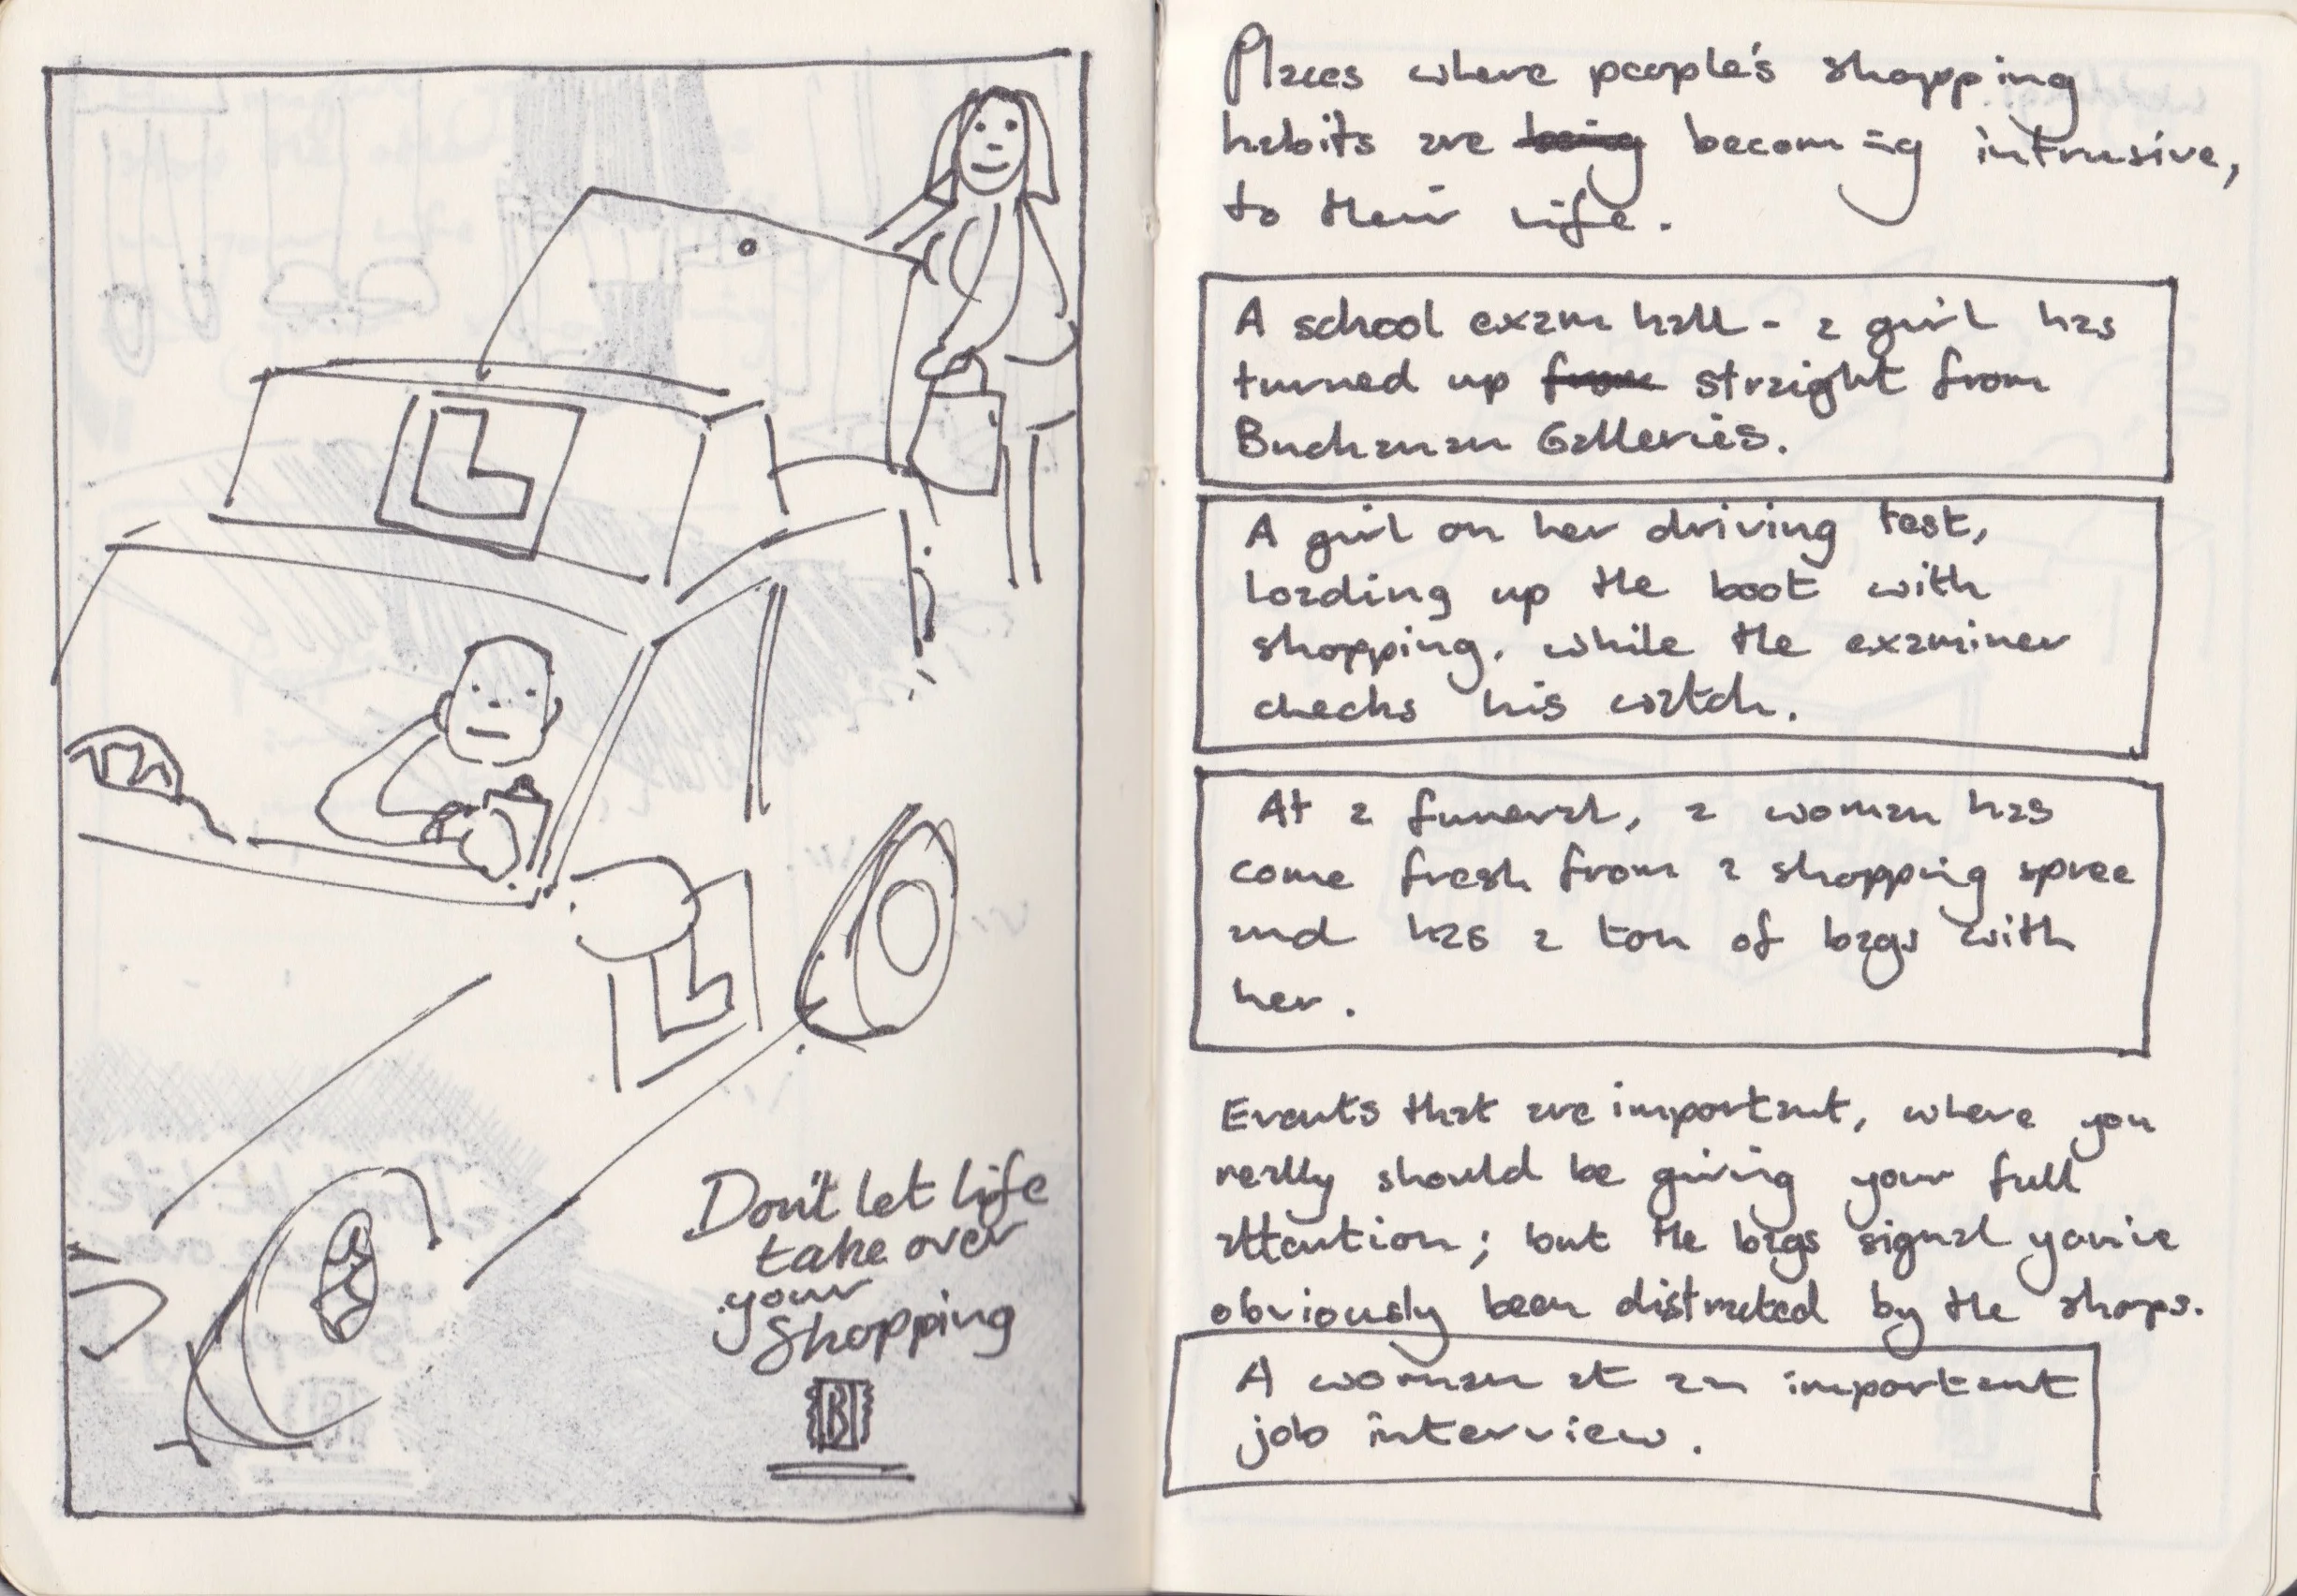 L
L
Don't let life
take over
your
Shopping
B
Places where people's shopping
habits are being becoming intrusive,
to their life.
A school exam hall - a girl has
turned up from straight from
Buchanan Galleries.
A girl on her driving test,
loading up the boot with
shopping. while the examiner
checks his watch.
At a funeral, a woman has
come fresh from a shopping spree
and has a ton of bags with
her.
Events that are important, where you
really should be giving your full
attention; but the bags signal you've
obviously been distracted by the shops.
A woman at an important
job interview.